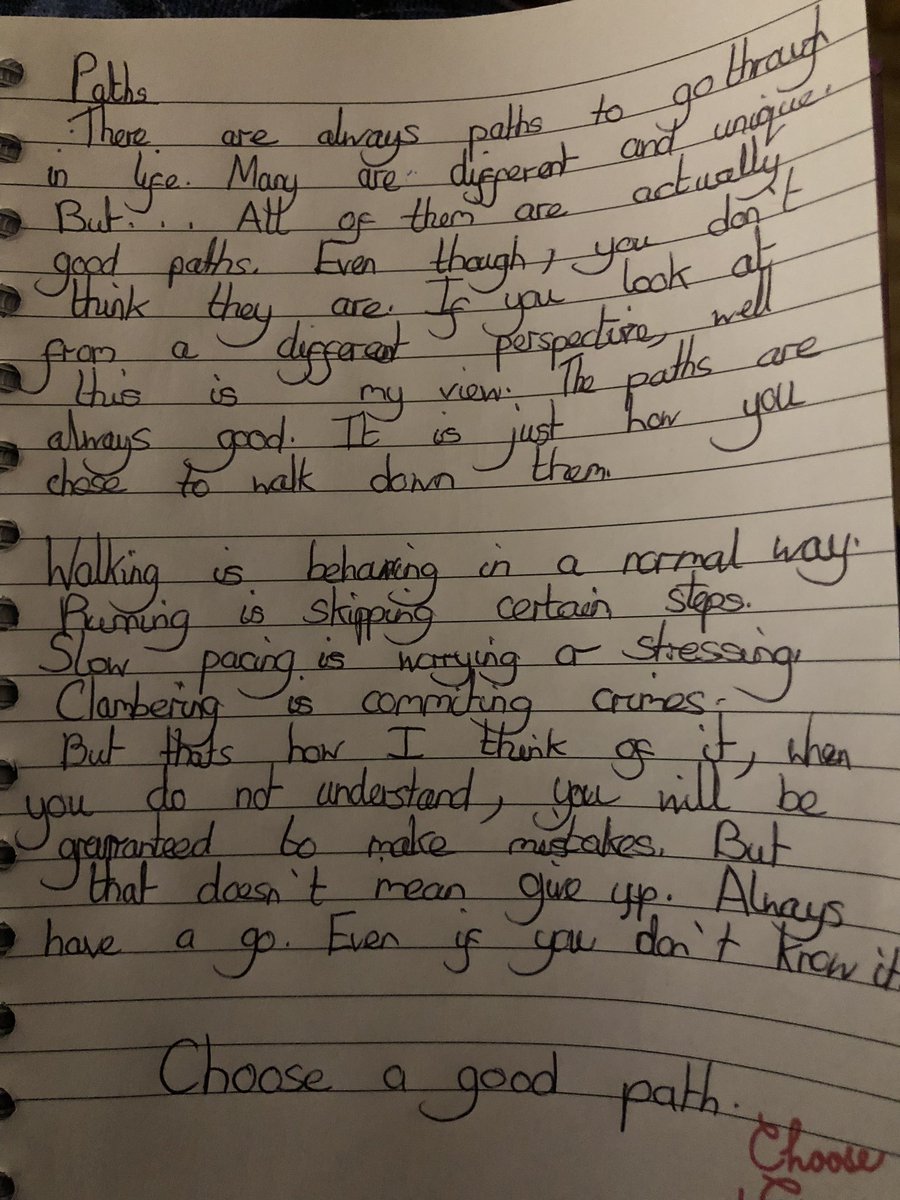 Paths
There are always paths to go through
in life. Many are different and unique.
But... All of them are actually
good paths. Even though, you don't
think they are. If you look at
from a different perspective, well
this is my view. The paths are
always good. It is just how you
chose to walk down them.
Walking is behaving in a normal way.
Running is skipping certain steps.
Slow pacing is worrying or stressing.
Clambering is commiting crimes.
But thats how I think of it, when
you do not understand, you will be
graunteed to make mistakes. But
that doesn't mean give up. Always
have a go. Even if you don't know it
Choose a good path.
Choose